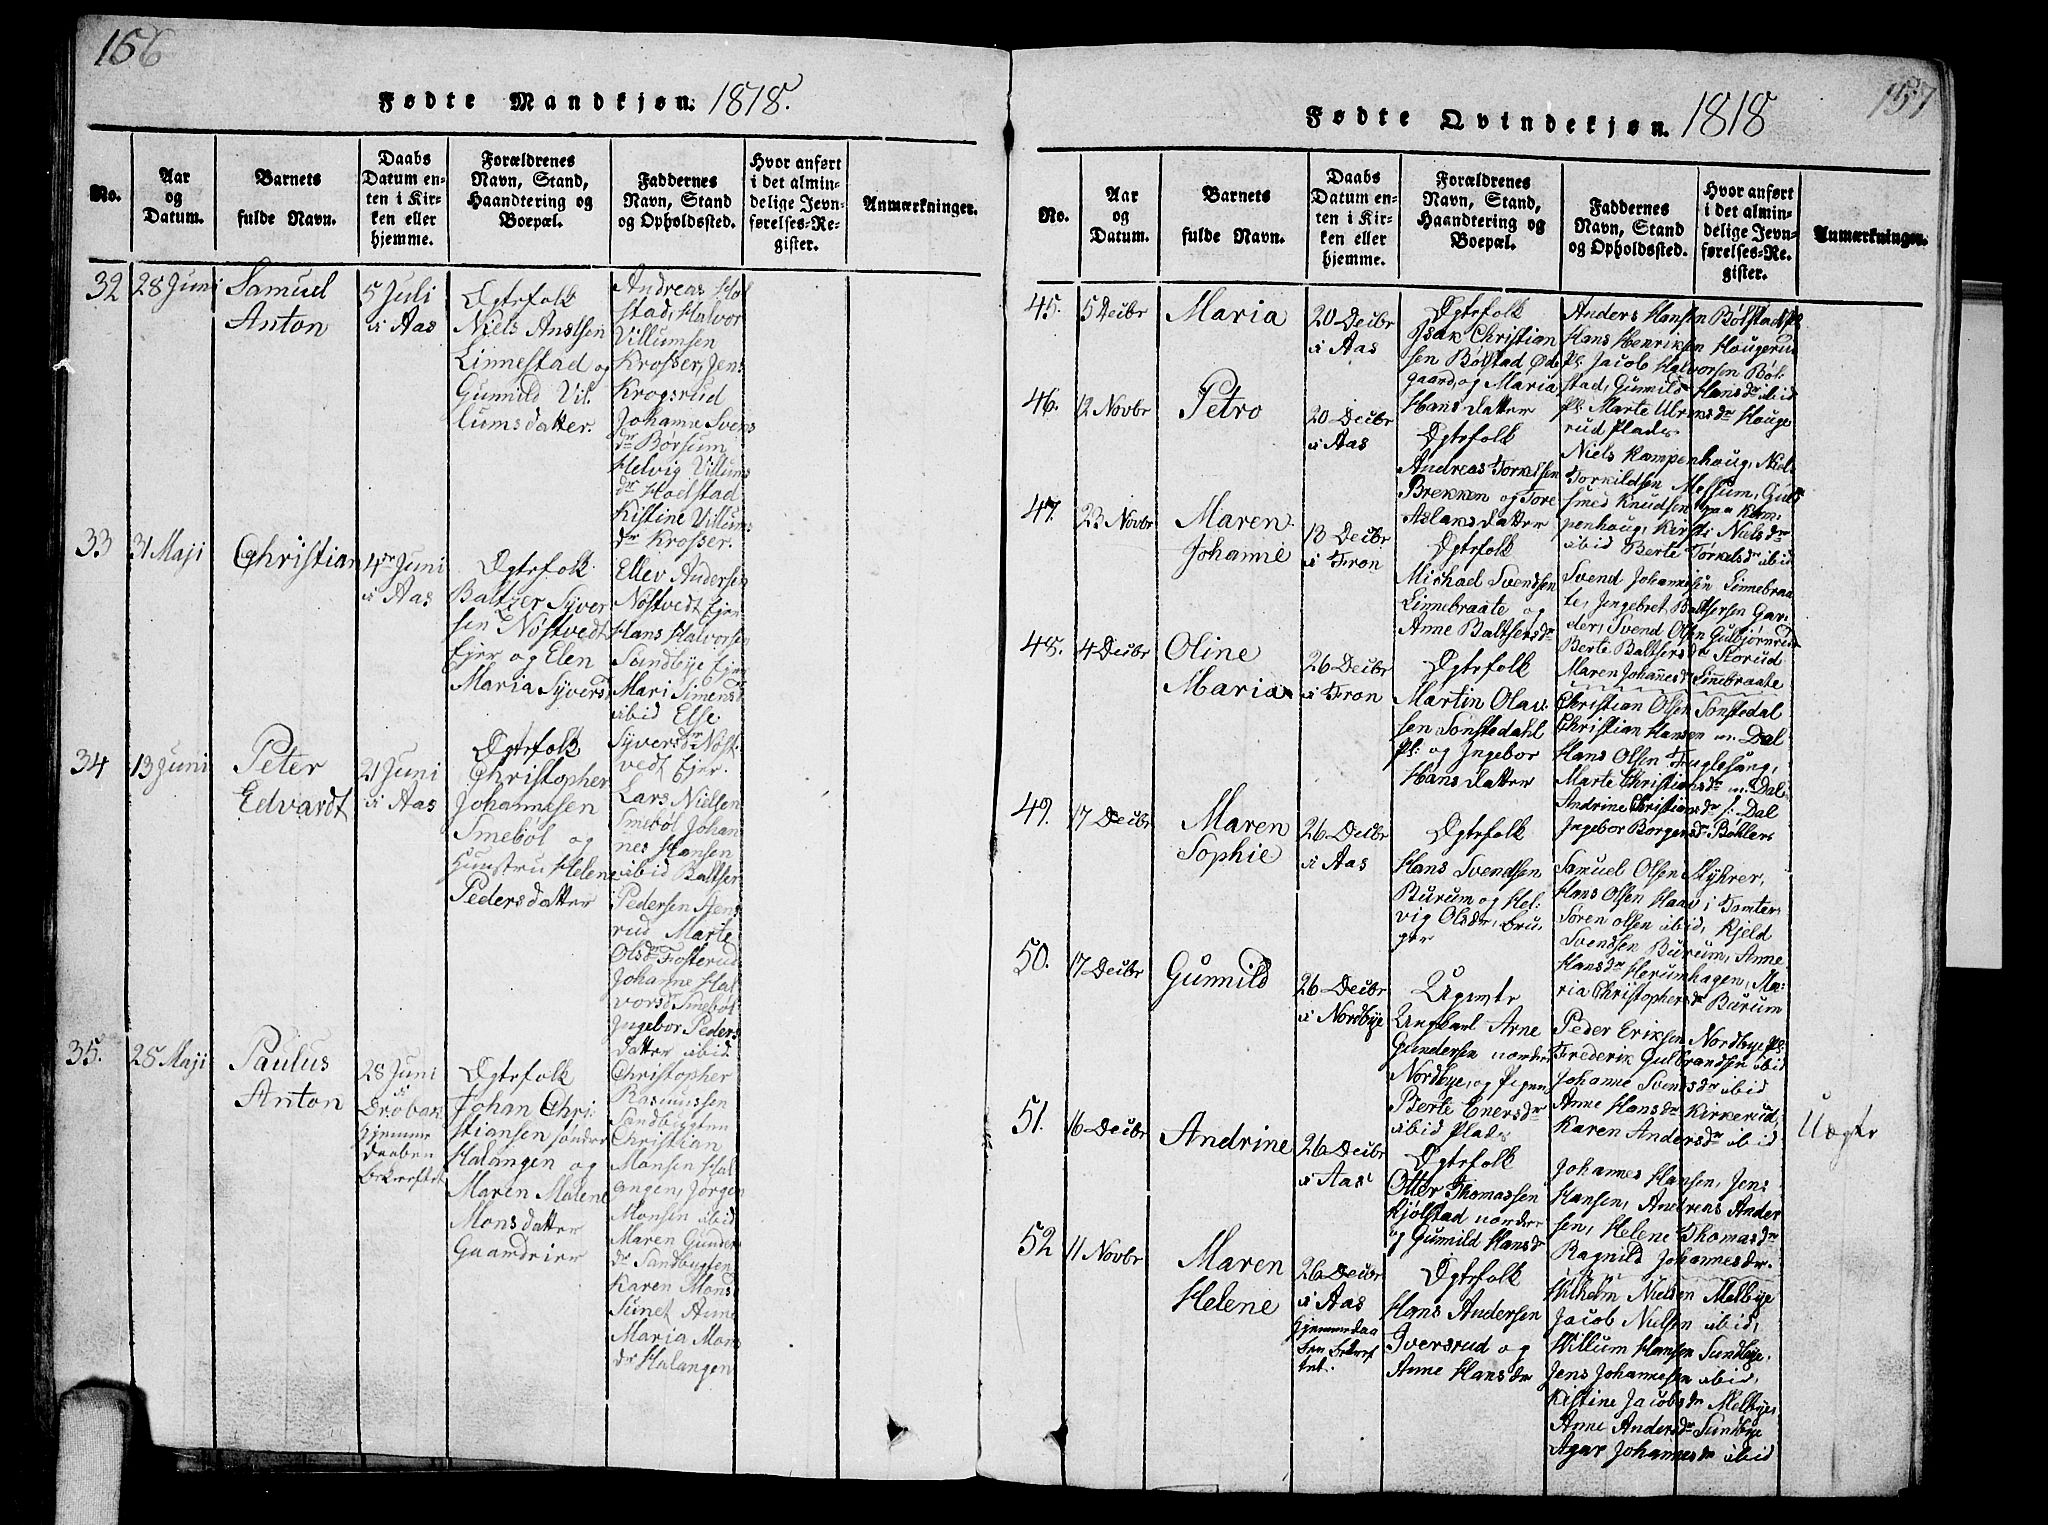 156
Fødte Mandkjøn. 1818.
No.
Aar
og
Datum.
Barnets
fulde Navn.
Daabs
Datum en-
ten i Kir-
ken eller
hjemme.
Forældrenes
Navn, Stand,
Haandtering og
Boepæl.
Faddernes
Navn, Stand
og Opholdssted.
Hvor anført
i det almin-
delige Jevn-
førelses-Re-
gister.
Anmærkninger.
32
28 Juni
Samuel
Anton
5 Juli
i Aas
Ægtefolk
Niels Anstsen
Linnestad og
Gunnild Vil
lumsdatter.
Andreas Hol
stad, Halvor
Villumsen
Krosser, Jens
Krogsrud
Johanne Svens
dr Borsum
Helvig Villums
dr Holstad
Kistine Villums
dr Krosser.
33
31 Maji
Christian
4de Juni
i Aas
Ægtefolk
Baltzer Syver
sen Nøstvedt
Ejer og Elen
Maria Syversd
Ellev Andersen
Nøstvedt Ejer
Hans Halvorsen
Sundbye Ejer
Mari Simensdr
ibid Else
Syversdr Nøst
vedt Ejer.
34
13 Juni
Peter
Edvardt
21 Juni
i Aas
Ægtefolk
Christopher
Johannesen
Smebøl og
Hunstru Helene
Pedersdatter
Lars Nielsen
Smebøl Johan
nes Hansen
ibid Baltser
Pedersen
rud Marte
Olsdr Fosterud
Johanne Hal
vorsdr Smebøl
Ingebor Peders
datter ibid.
35.
28 Maji
Paulus
Anton
28 Juni
i
Drøbak
hjemme
daaben
bekræftet
Ægtefolk
Johan Chri
stiansen søndre
Halangen og
Maren Malene
Monsdatter
Christopher
Rasmussen
Sandbugten
Christian
Monsen Hal
angen, Jørgen
Monsen ibid
Maren Gunder
dr Sandbugten
Karen Mons
Sunet Anne
Maria Mons
dr Halangen
157
Fødte Qvindekjøn. 1818
No.
Aar
og
Datum.
Barnets
fulde Navn.
Daabs
Datum en-
ten i Kir-
ken eller
hjemme.
Forældrenes
Navn, Stand,
Haandtering og
Boepæl.
Faddernes
Navn, Stand
og Opholdssted.
Hvor anført
i det almin-
delige Jevn-
førelses-Re-
gister.
Anmærkninger.
45.
5 Decbr
Maria
20 Decbr
i Aas
Ægtefolk
Isak Christian
sen Bølstad Øde
gaard, og Maria
Hans datter
Anders Hansen Bølstad pl
Hans Henriksen Hougerud
pl. Jacob Halvorsen Bøl
stad, Gunnild Hansdr ibid
pl. Marte Ulriksdr Houge
rud Plads.
46.
12 Novbr
Petro
20 Decbr
i Aas
Ægtefolk
Andreas Torkelsen
Brekken og Tore
Aslaksdatter
Niels Kampenhoug, Niels
Torkildsen Messum, Guld
smed Knudsen paa Kam
penhoug, Kirsti Nielsdr
ibid Berte Torkelsdr ibid
47.
23 Novbr
Maren
Johanne
13 Decbr
i Fron
Ægtefolk
Michael Svendsen
Linnebraate og
Anne Baltsersdr
Svend Johannesen Linnebraa
te, Jngebret Baltsersen Gar
der, Svend Olsen Gulbjørnrud
Berte Baltsersdr Storud
Maren Johannesdr Linnebraate
48.
4 Decbr
Oline
Maria
26 Decbr
i Fron
Ægtefolk
Martin Olav
sen Sønstedahl
Pl. og Ingebor
Hans datter
Christian Olsen Sønstedal
Christian Hansen n. Dal
Hans Olsen Fuglesang,
Marte Christiansdr n. Dal
Andrine Christiansdr s. Dal
Ingebor Borgersdr Bøhler
49.
17 Decbr
Maren
Sophie
26 Decbr
i Aas
Ægtefolk
Hans Svendsen
Burum og Hel
vig Olsdr, bru
ger
Samuel Olsen Myhrer,
Hans Olsen Haav i Tomter
Søren olsen ibid, Kjeld
Svendsen Burum, Anne
Hansdr Herumhagen, Ma
ria Christophersdr Burum
50.
17 Decbr
Gunnild
26 Decbr
i Nordbye
Ugivte
Ungkarl Arne
Gundersen nordre
Nordbye, og Pigen
Berte Enersdr
ibid Plads
Peder Eriksen Nordbye pl.
Frederik Gulbrandsen ibid
Johanne Svensdr ibid
Anne Hansdr Kirkerud,
Karen Andersdr ibid
Uægte
51.
16 Decbr
Andrine
26 Decbr
i Aas
Ægtefolk
Otter Thomassen
Kjølstad nordre
og Gunnild Hansdr
Johannes Hansen, Jens
Hansen, Andreas Ander
sen, Helene Thomasdr
Ragnild Johannesdr.
52
11 Novbr
Maren
Helene
26 Decbr
i Aas
hjemmedaa
ben bekræf
tet.
Ægtefolk
Hans Andersen
Iversrud og
Anne Hansdr
Wilhelm Nielsen Melbye
Jacob Nielsen ibid,
Willum Hansen Sundbye,
Jens Johannesen ibid,
Kistine Jacobsdr Melbye,
Anne Andersdr Sundbye
Agar Johannesdr ibid